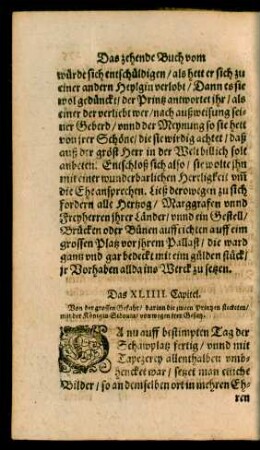 Das zehende Buch vom
würde sich entschüldigen / als hett er sich zu
einer andern Heylgin verlobt / Dann es sie
wol gedünckt / der Printz antwortet jhr / als
einer der verliebt wer / nach außweisung sei-
ner Geberd / vnnd der Meynung so sie hett
von jrer Schöne / die sie wirdig achtet / daß
auß der gröst Herr in der Welt billich solt
anbeten. Entschloß sich also / sie wolte jhn
mit einer wunderbarlichen Herrligkeit vm̃
die Ehe ansprechen. Ließ derowegen zu sich
fordern alle Hertzog / Marggrafen vnnd
Freyherren jhrer Länder / vnnd ein Gestell /
Brücken oder Bünen auffrichten auff ein
grossen Platz vor jhrem Pallast / die ward
gantz vnd gar bedeckt mit eim gülden stück /
jr Vorhaben allda ins Werck zu setzen.
Das XLIIII. Capitel.
Von der grossen Gefahr / darinn die zween Printzen steckten /
mit der Königin Sidonia / von wegen ires Gesetz.
DA nu auff bestimpten Tag der
Schawplatz fertig / vnnd mit
Tapezerey allenthalben vmb-
hencket war / setzet man etliche
Bilder / so an demselben ort in mehren Eh-
ren